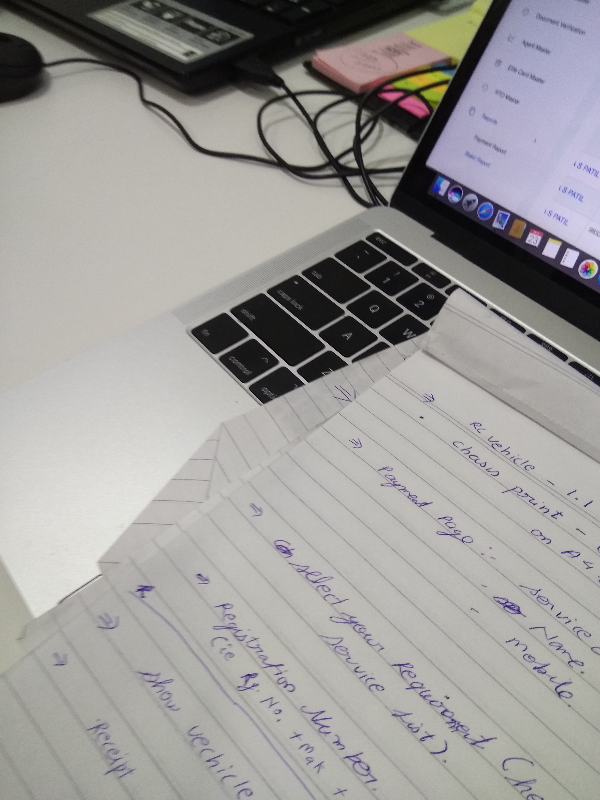 Document Verification
Agent Master
Elite Card Master
RTO Master
Reports
Payment Report
LS PATIL
LS PATIL
LS PATIL
esc
~
`
!
1
@
2
tab
Q
W
caps lock
A
shift
Z
fn
control
⇒ RC vehicle - 1.1
chasis print -
on A4.
⇒ Payment Page :-
- service
- Name.
- mobile.
⇒ select your Requirement (he
service list).
⇒ Registration Number.
(ie Rg. No. + mak +
⇒ show vechicle
⇒ Receipt